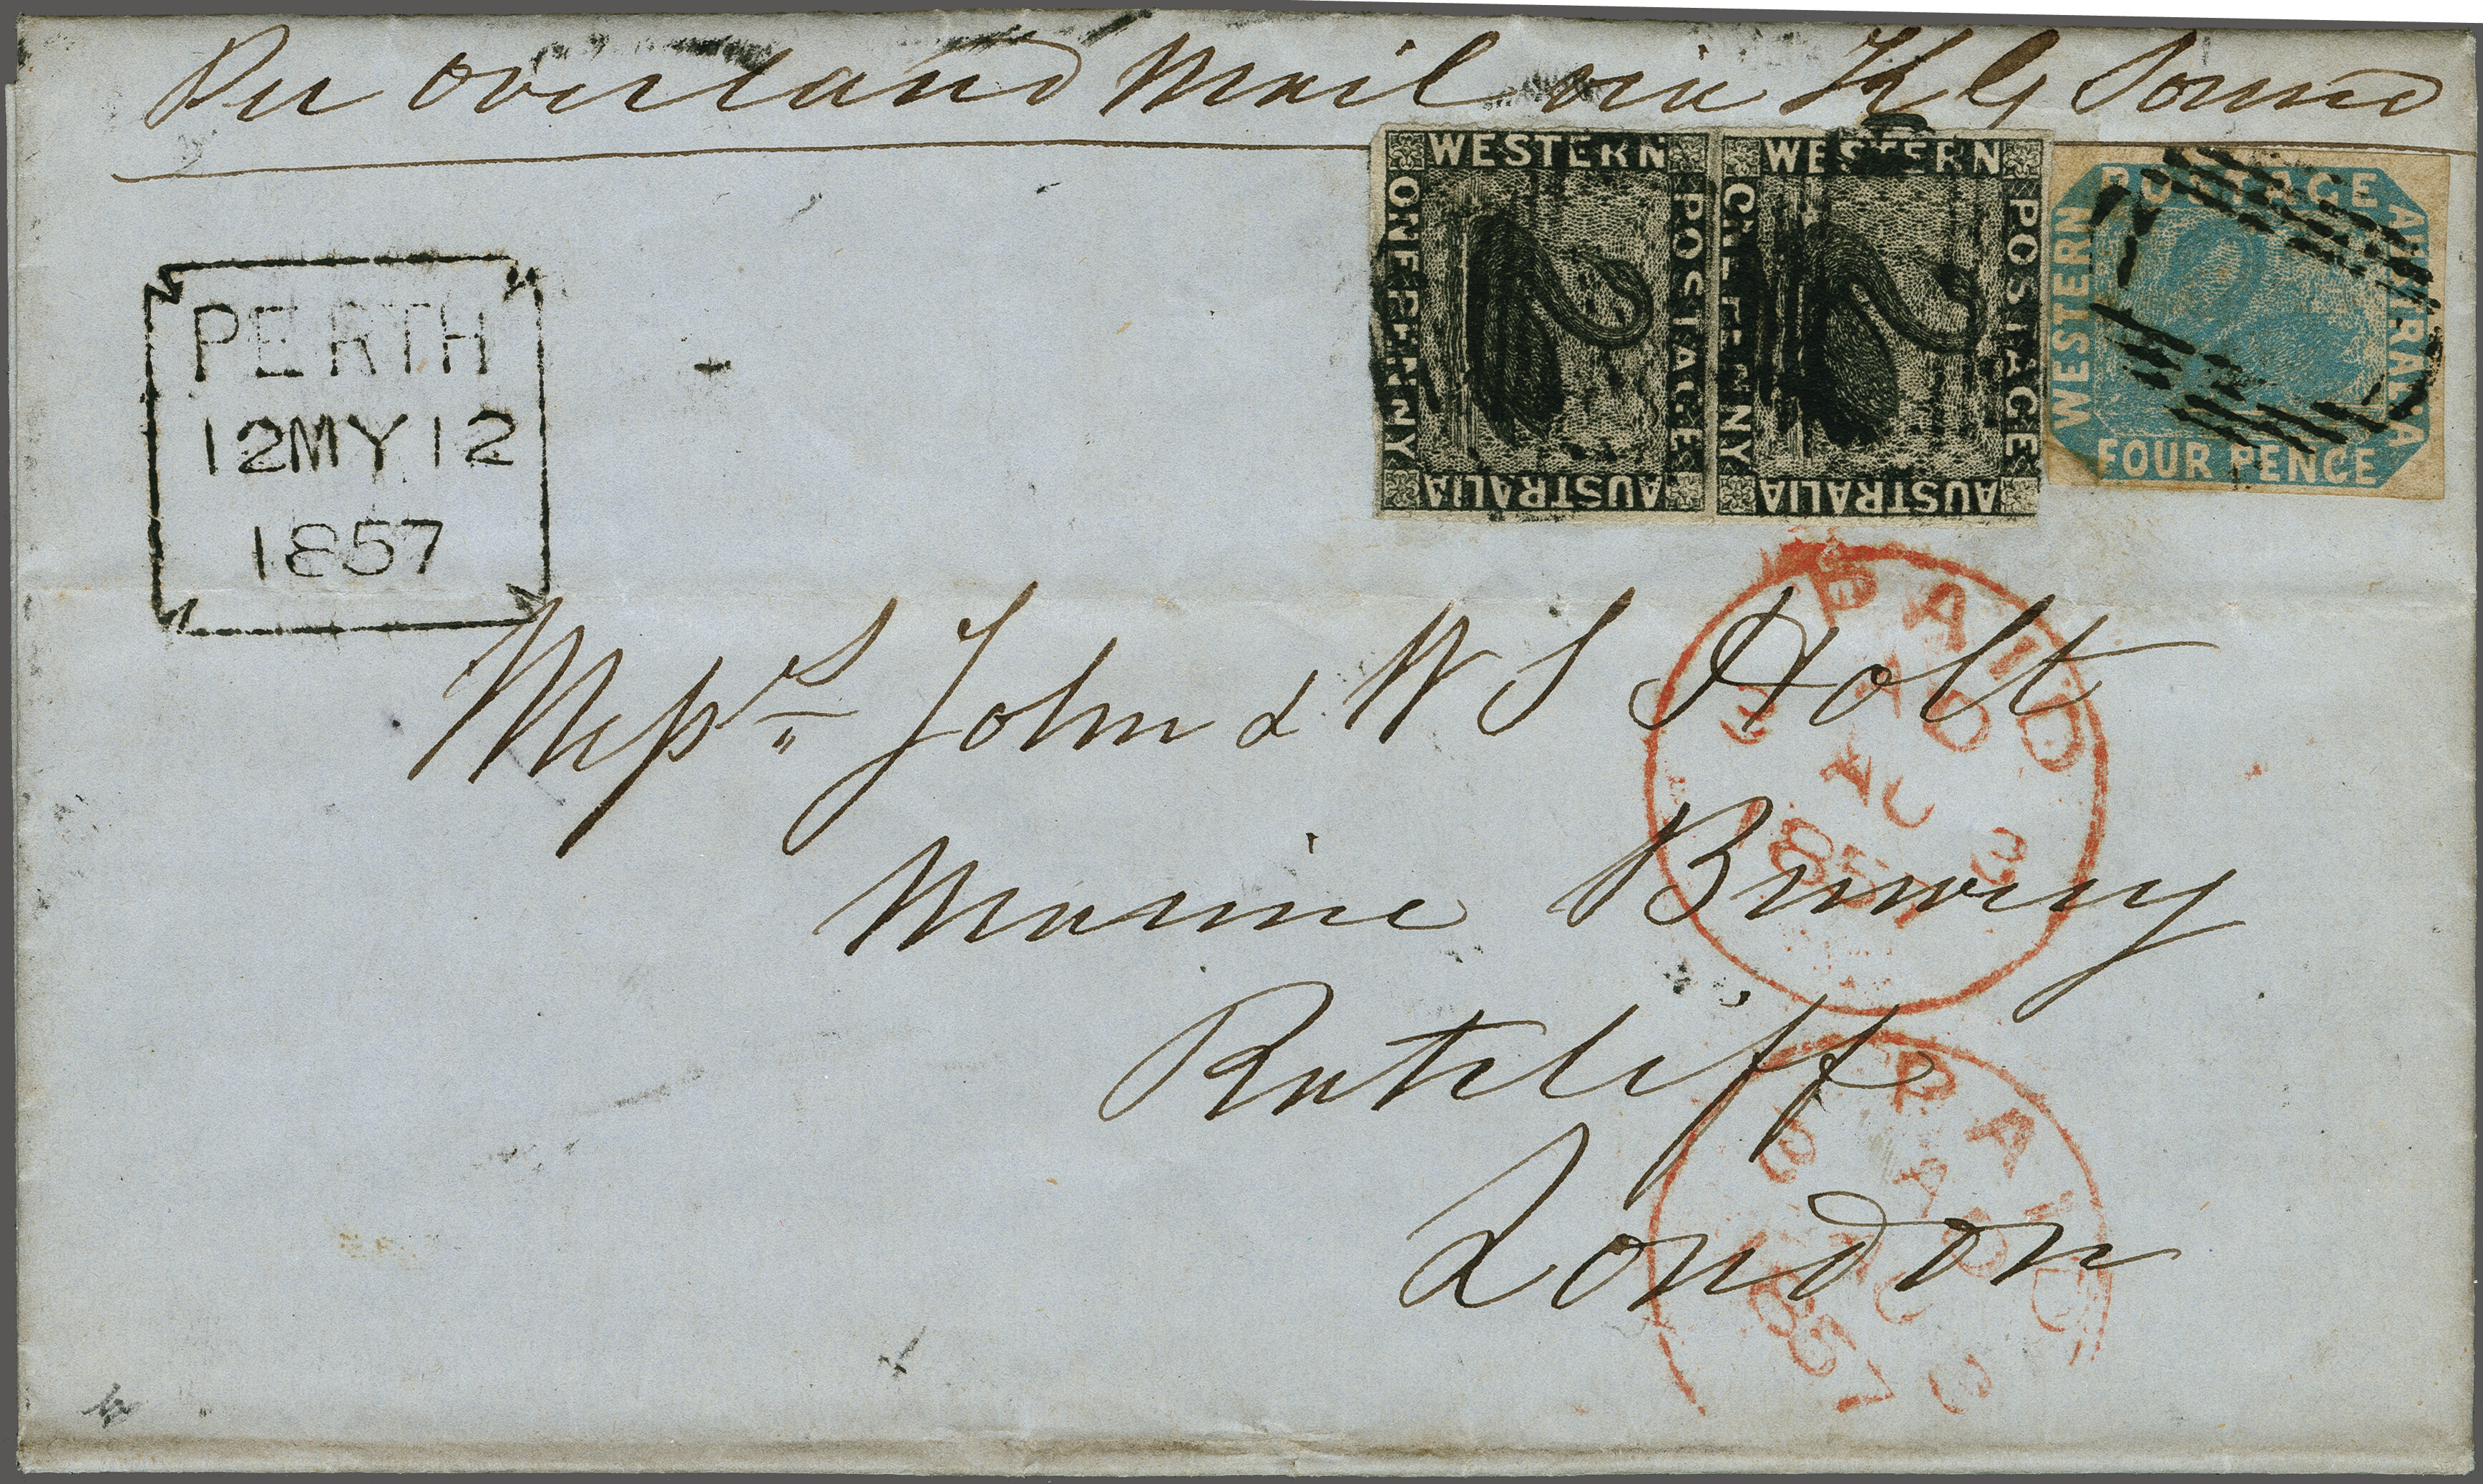 Per Overland Mail via K G Sound
WESTERN
ONE PENNY
POSTAGE
AUSTRALIA
WESTERN
ONE PENNY
POSTAGE
AUSTRALIA
POSTAGE
WESTERN
AUSTRALIA
FOUR PENCE
PERTH
12MY12
1857
Messrs John & W S Holt
Marine Brewery
Ratcliff
London
PAID
AD
AU 3
1857
PAID
1857